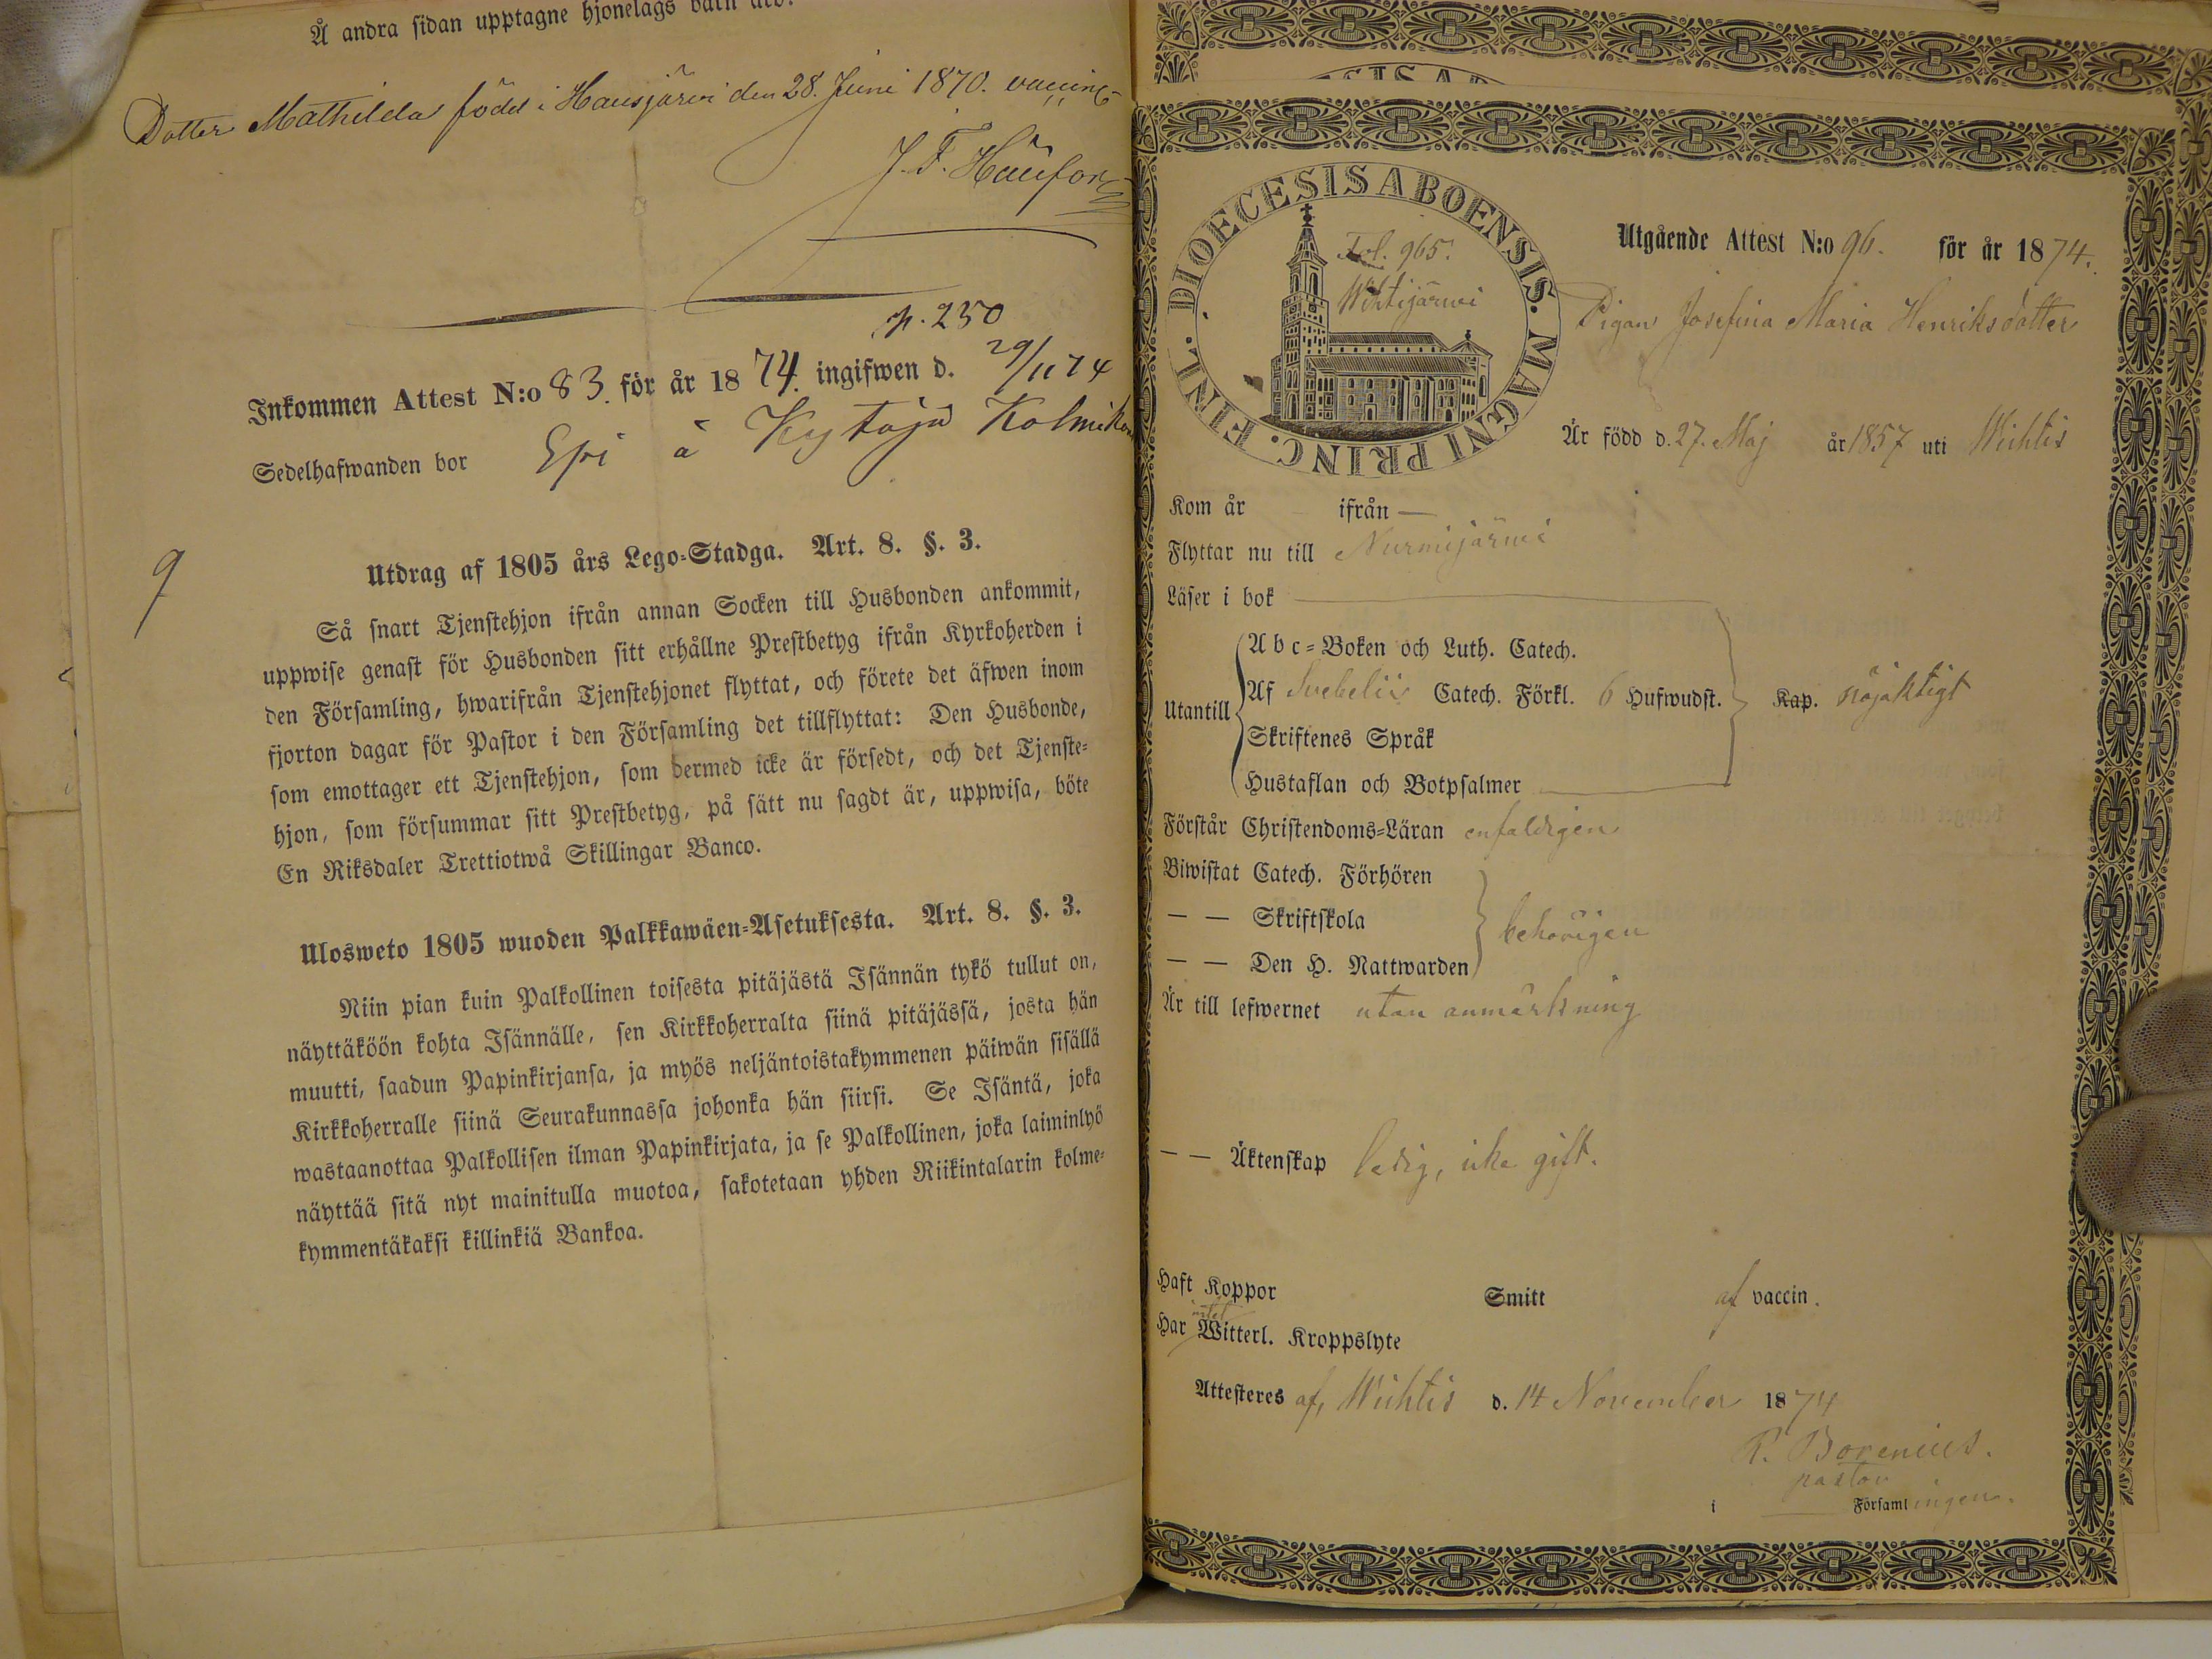 Å andra sidan upptagne hjonelags barn äro:
Dotter Mathilda född i Hausjärvi den 28. Juni 1870. vaccine
J. F.
p. 250
Inkommen Attest N:o 83. för år 1874. ingifwen d. 29/11 74
Sedelhafwanden bor Epi å Kytäjä
9
Utdrag af 1805 års Lego-Stadga. Art. 8. §. 3.
Så snart Tjenstehjon ifrån annan Socken till Husbonden ankommit,
uppwise genast för Husbonden sitt erhållne Prestbetyg ifrån Kyrkoherden i
den Församling, hwarifrån Tjenstehjonet flyttat, och förete det äfwen inom
fjorton dagar för Pastor i den Församling det tillflyttat: Den Husbonde,
som emottager ett Tjenstehjon, som dermed icke är försedt, och det Tjenste-
hjon, som försummar sitt Prestbetyg, på sätt nu sagdt är, uppwisa, böte
En Riksdaler Trettiotwå Skillingar Banco.
Ulosweto 1805 wuoden Palkkawäen-Asetuksesta. Art. 8. §. 3.
Niin pian kuin Palkollinen toisesta pitäjästä Isännän tykö tullut on,
näyttäköön kohta Isännälle, sen Kirkkoherralta siinä pitäjässä, josta hän
muutti, saadun Papinkirjansa, ja myös neljäntoistakymmenen päiwän sisällä
Kirkkoherralle siinä Seurakunnassa johonka hän siirsi. Se Isäntä, joka
wastaanottaa Palkollisen ilman Papinkirjata, ja se Palkollinen, joka laiminlyö
näyttää sitä nyt mainitulla muotoa, sakotetaan yhden Riikintalarin kolme-
kymmentäkaksi killinkiä Bankoa.
DIOECESIS ABOENSIS. MAGNI PRINC. FINL.
Fol. 965.
Wihtijärvi
Utgående Attest N:o 96. för år 1874.
Pigan Josefina Maria Henriksdotter
Är född d. 27. Maj år 1857 uti Wichtis
Kom år — ifrån —
Flyttar nu till Nurmijärvi
Läser i bok
Utantill
Abc-Boken och Luth. Catech.
Af Svebelii Catech. Förkl. 6 Hufwudst. Kap. nöjaktigt
Skriftenes Språk
Hustaflan och Botpsalmer
Förstår Christendoms-Läran enfaldigen
Biwistat Catech. Förhören
— — Skriftskola behörigen
— — Den H. Nattwarden
Är till lefwernet utan anmärkning
— — Äktenskap ledig, icke gift.
Haft Koppor Smitt af vaccin.
intet
Har Witterl. Kroppslyte
Attesteres af, Wichtis d. 14 November 1874
R. Borenius.
pastor
i Församlingen.